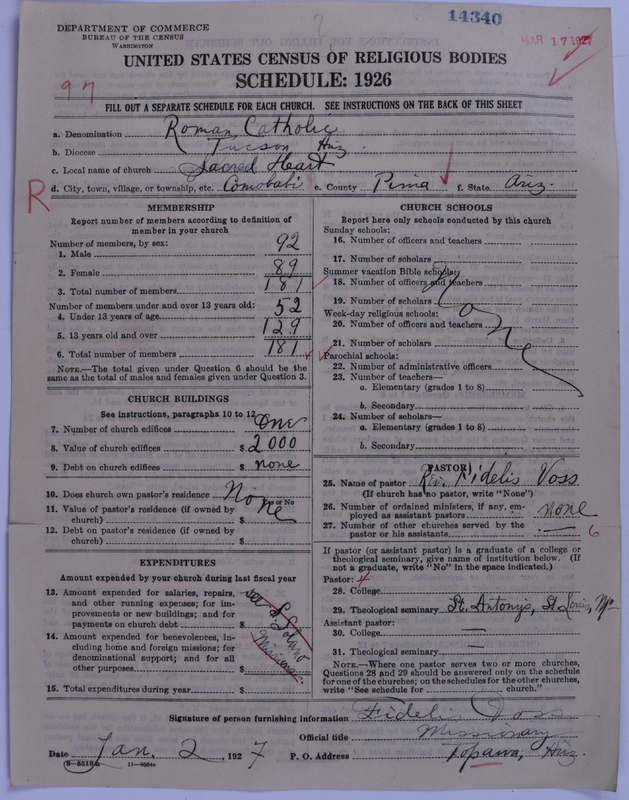 14340
MAR 17 1927
DEPARTMENT OF COMMERCE
BUREAU OF THE CENSUS
WASHINGTON
UNITED STATES CENSUS OF RELIGIOUS BODIES
SCHEDULE: 1926
97
FILL OUT A SEPARATE SCHEDULE FOR EACH CHURCH. SEE INSTRUCTIONS ON THE BACK OF THIS SHEET
a. Denomination Roman Catholic
b. Diocese Tucson Ariz.
c. Local name of church Sacred Heart
d. City, town, village, or township, etc. Comobabi e. County Pima f. State Ariz.
R
MEMBERSHIP
Report number of members according to definition of
member in your church
Number of members, by sex:
1. Male 92
2. Female 89
3. Total number of members 181
Number of members under and over 13 years old:
4. Under 13 years of age 52
5. 13 years old and over 129
6. Total number of members 181
NOTE.—The total given under Question 6 should be
same as the total of males and females given under Question 3.
CHURCH BUILDINGS
See instructions, paragraphs 10 to 12
7. Number of church edifices One
8. Value of church edifices $ 2000
9. Debt on church edifices $ none
10. Does church own pastor's residence No
Yes or No
11. Value of pastor's residence (if owned by
church) $ None
12. Debt on pastor's residence (if owned by
church) $
EXPENDITURES
Amount expended by your church during last fiscal year
13. Amount expended for salaries, repairs,
and other running expenses; for im-
provements or new buildings; and for
payments on church debt $
14. Amount expended for benevolences, in-
cluding home and foreign missions; for
denominational support; and for all
other purposes $
see S. Solano
Missions.
15. Total expenditures during year $
CHURCH SCHOOLS
Report here only schools conducted by this church
Sunday schools:
16. Number of officers and teachers
17. Number of scholars
Summer vacation Bible schools:
18. Number of officers and teachers
19. Number of scholars
Week-day religious schools:
20. Number of officers and teachers
21. Number of scholars
None
Parochial schools:
22. Number of administrative officers
23. Number of teachers—
a. Elementary (grades 1 to 8)
b. Secondary
24. Number of scholars—
a. Elementary (grades 1 to 8)
b. Secondary
PASTOR
25. Name of pastor Rev. Fidelis Voss
(If church has no pastor, write "None")
26. Number of ordained ministers, if any, em-
ployed as assistant pastors none
27. Number of other churches served by the
pastor or his assistants — 6
If pastor (or assistant pastor) is a graduate of a college or
theological seminary, give name of institution below. (If
not a graduate, write "No" in the space indicated.)
Pastor:
28. College
29. Theological seminary St. Antony's, St. Louis, Mo
Assistant pastor:
30. College —
31. Theological seminary —
NOTE.—Where one pastor serves two or more churches,
Questions 28 and 29 should be answered only on the schedule
for one of the churches; on the schedules for the other churches,
write "See schedule for church."
Signature of person furnishing information Fidelis Voss
Official title Missionary
Date Jan. 2, 1927 P. O. Address Topawa, Ariz.
8-5518a 11-9084a